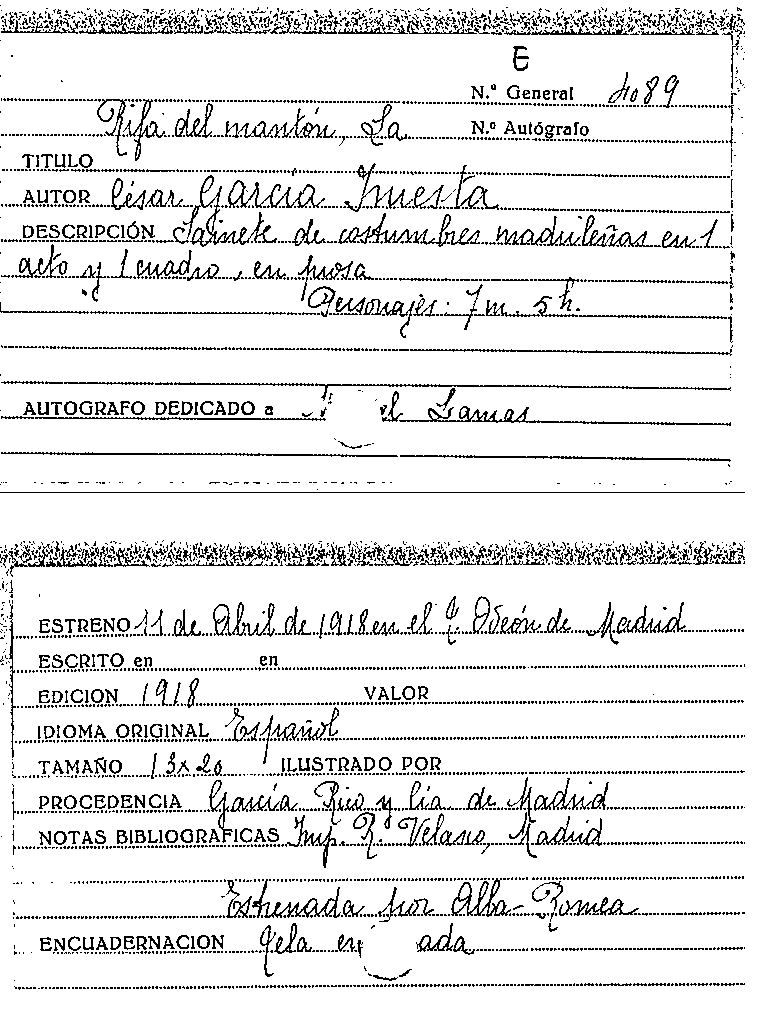 E
N.º General 4089
Rifa del mantón, La
N.º Autógrafo
TITULO
AUTOR César García Iniesta
DESCRIPCIÓN Sainete de costumbres madrileñas en 1
acto y 1 cuadro, en prosa
Personajes: 7 m. 5 h.
AUTOGRAFO DEDICADO a Lamas
ESTRENO 11 de Abril de 1918 en el T. Odeón de Madrid
ESCRITO en en
EDICION 1918 VALOR
IDIOMA ORIGINAL Español
TAMAÑO 13x20 ILUSTRADO POR
PROCEDENCIA García Rico y Cía de Madrid
NOTAS BIBLIOGRAFICAS Imp. R. Velasco, Madrid
Estrenada por Alba-Romea
ENCUADERNACION Tela